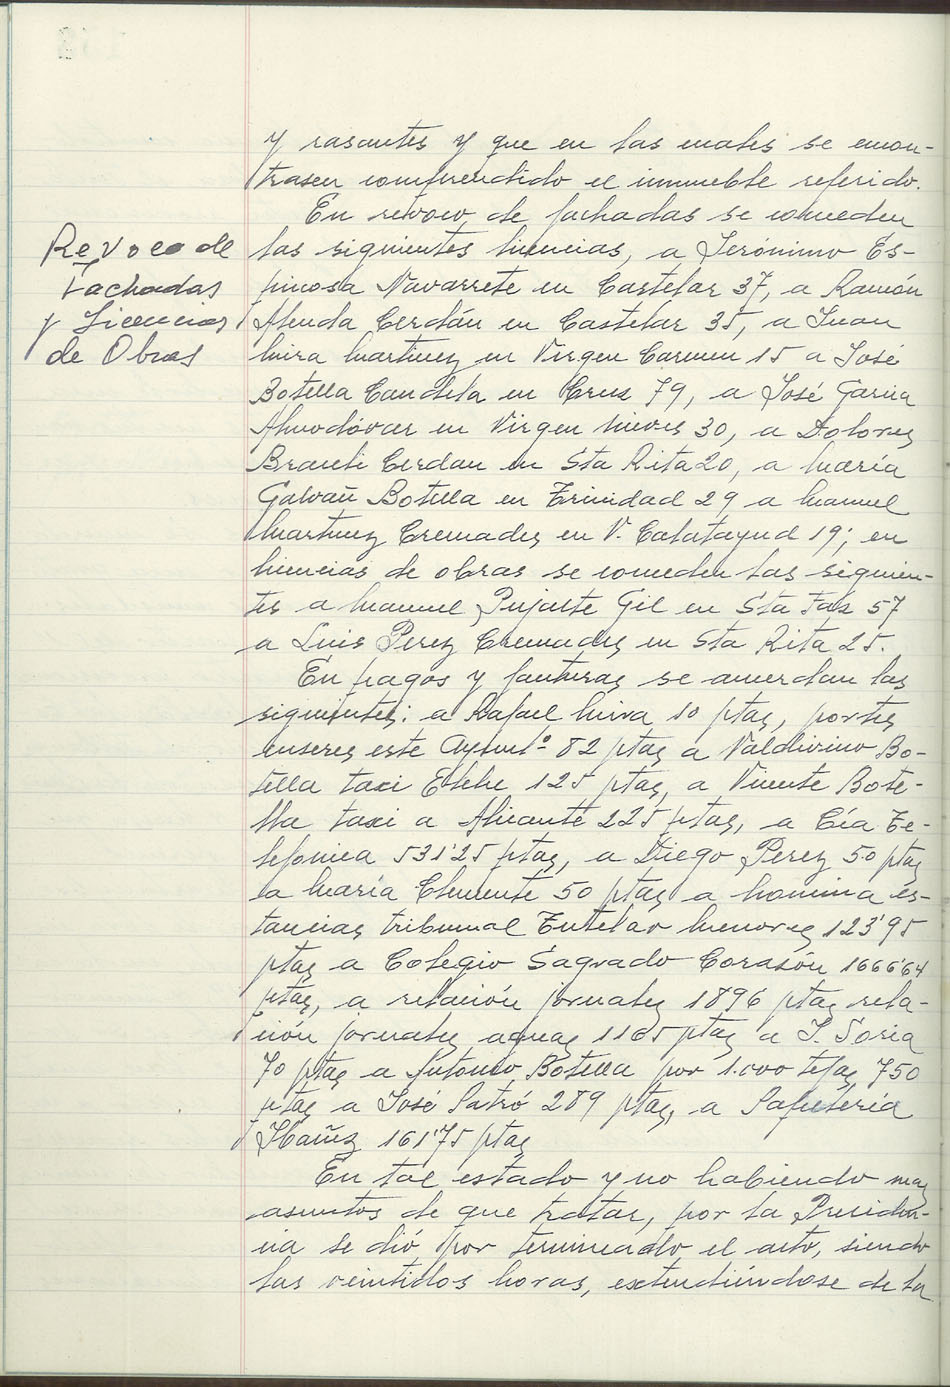 y rasantes y que en las cuales se encon-
trasen comprendido el inmueble referido.
Revoco de
Fachadas
y Licencias
de Obras
En revoco de fachadas se conceden
las siguientes licencias, a Jerónimo Es-
pinosa Navarrete en Castelar 37, a Ramón
Abenda Cerdán en Castelar 35, a Juan
Mira Martinez en Virgen Carmen 15 a José
Botella Candela en Cruz 79, a José Garcia
Almodóvar en Virgen Nieves 30, a Dolores
Cerdan en Sta Rita 20, a Maria
Galvañ Botella en Trinidad 29 a Manuel
Martinez Cremades en V. Calatayud 19; en
licencias de obras se conceden las siguien-
tes a Manuel Pujalte Gil en Sta Faz 57
a Luis Perez Cremades en Sta Rita 25.
En pagos y facturas se acuerdan las
siguientes: a Rafael Mira 10 ptas, portes
enseres este Ayunt.º 82 ptas a Valdivino Bo-
tella taxi Elche 125 ptas, a Vicente Bote-
lla taxi a Alicante 225 ptas, a Cía Te-
lefonica 531'25 ptas, a Diego Perez 50 ptas
a María Clemente 50 ptas a nomina es-
tancias tribunal Tutelar Menores 123'95
ptas a Colegio Sagrado Corasón 1666'64
ptas, a relación jornales 1896 ptas rela-
ción jornales aguas 1165 ptas a J. Soria
70 ptas a Antonio Botella por 1.000 tejas 750
ptas a José Patró 289 ptas, a Papeleria
Ibañez 161'75 ptas
En tal estado y no habiendo mas
asuntos de que tratar, por la Presiden-
cia se dió por terminado el acto, siendo
las veintidos horas, extendiéndose de la